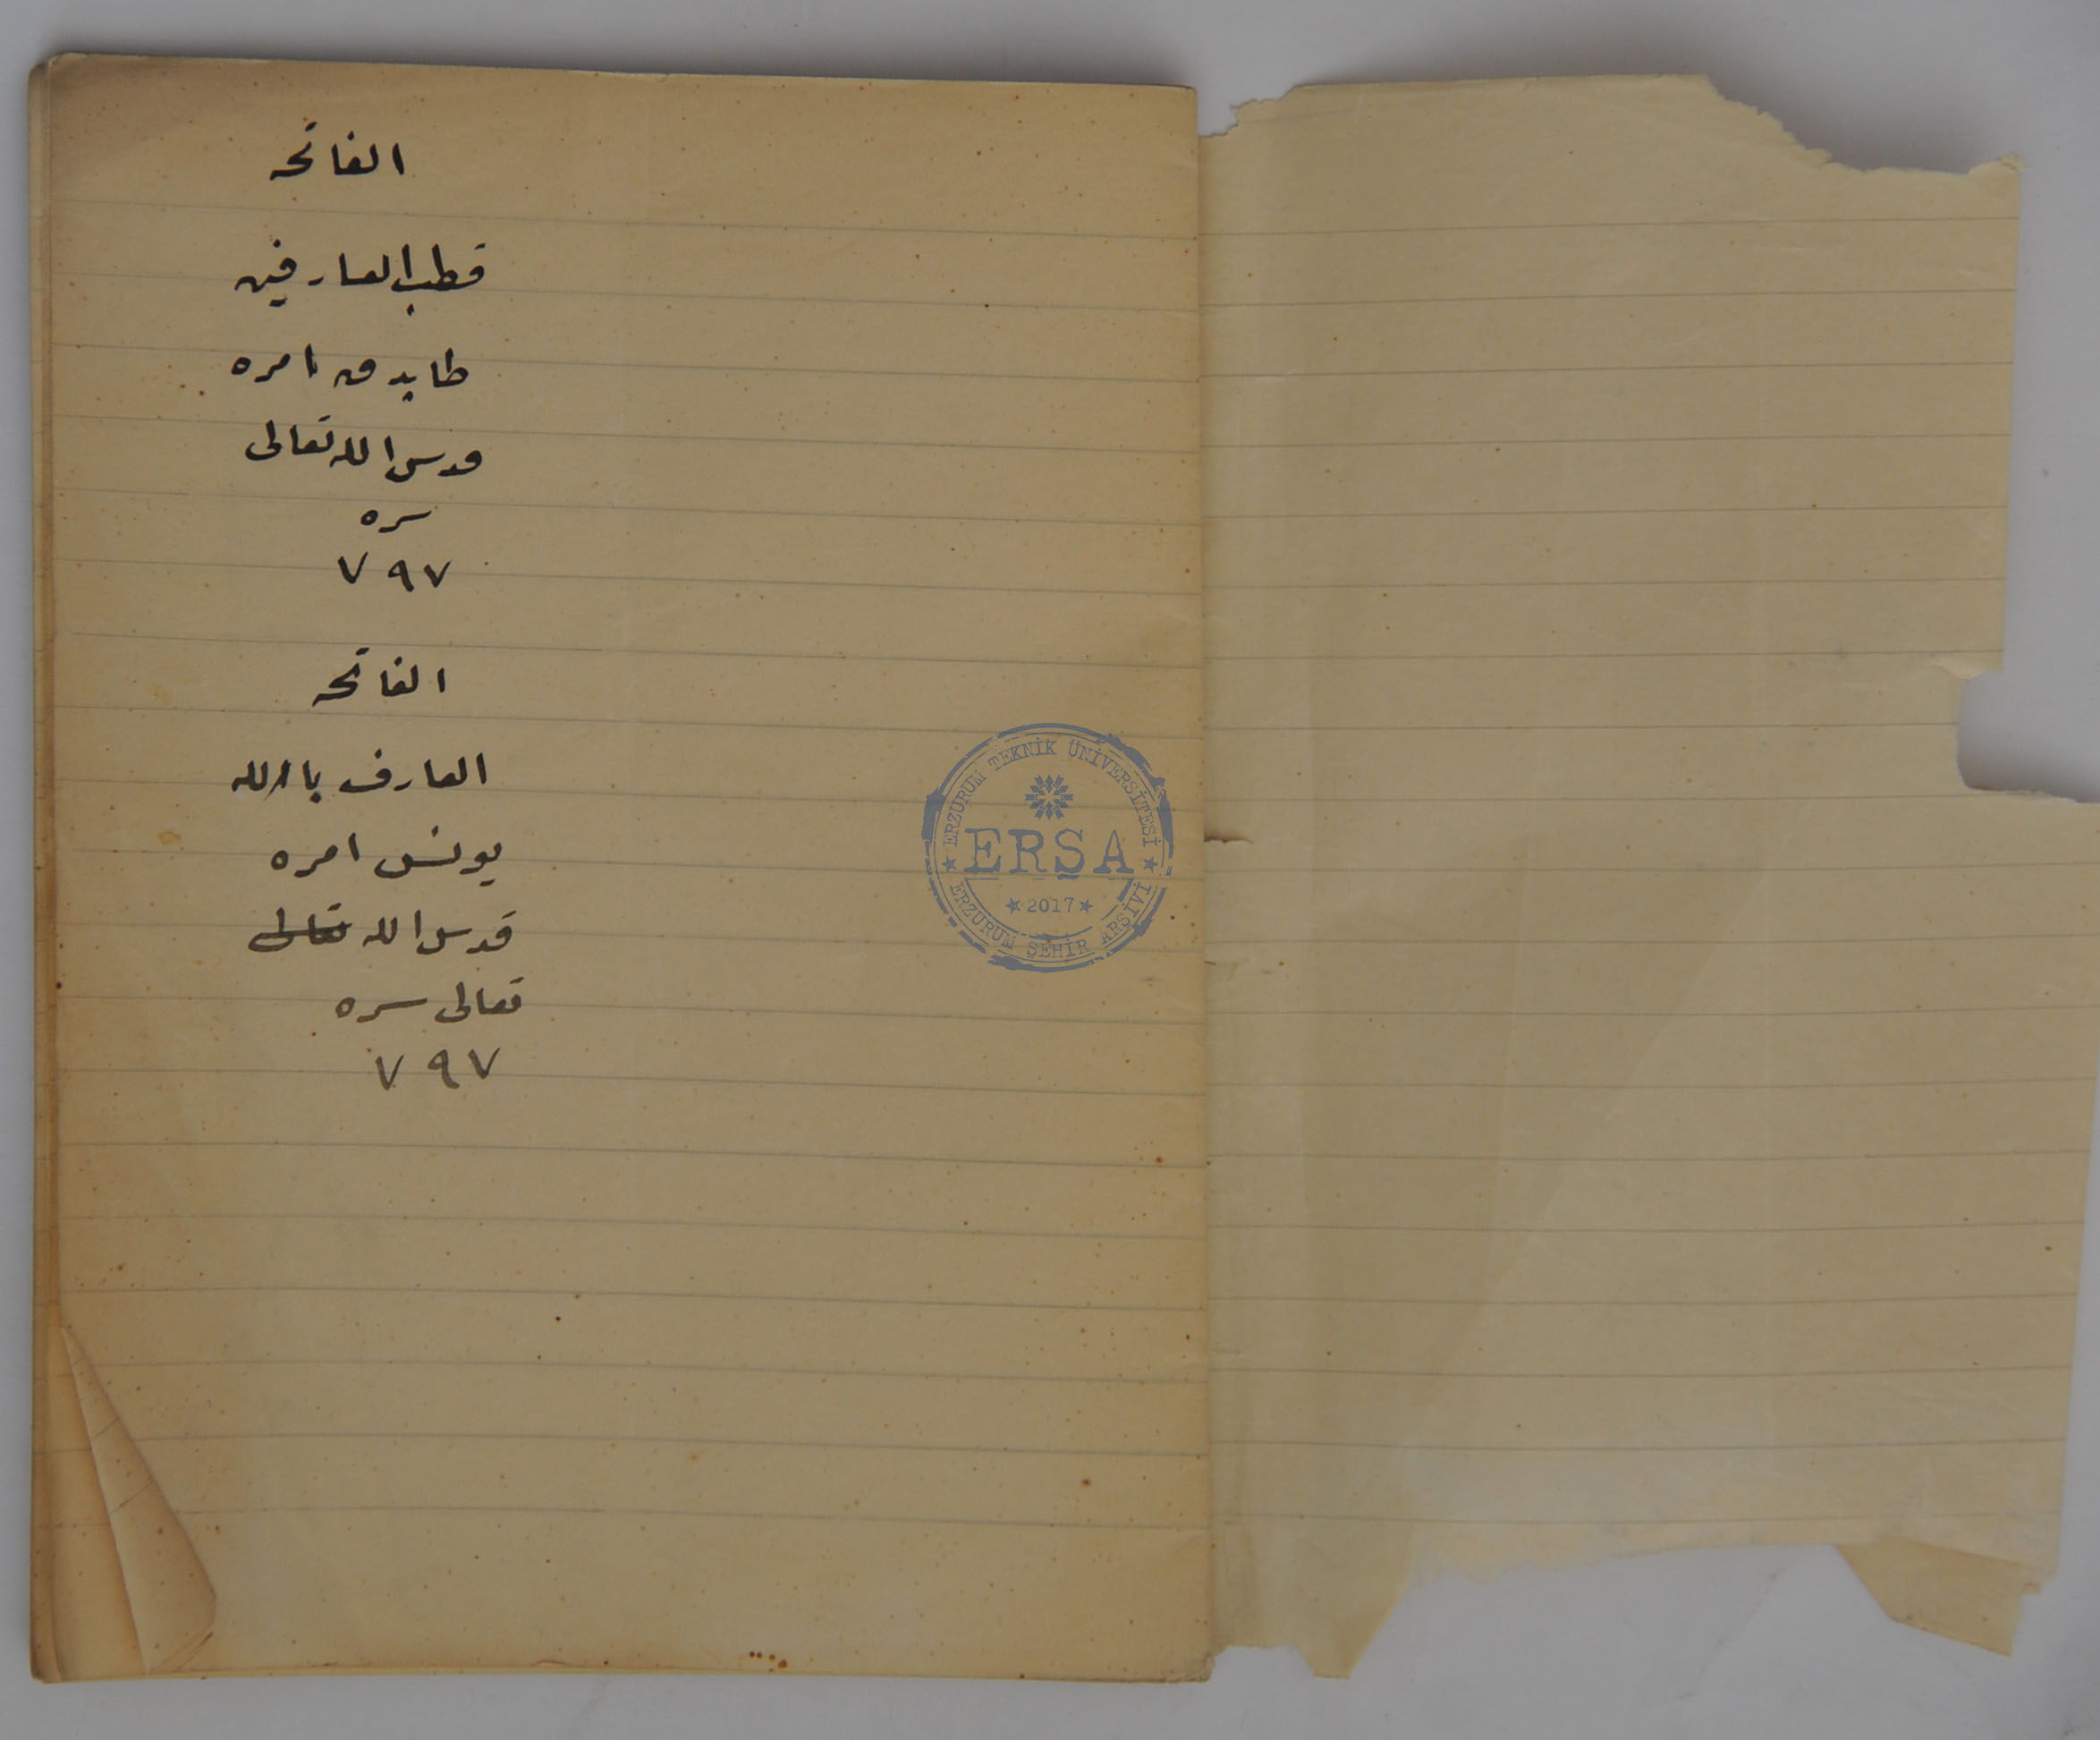 الفاتحه
قطب العارفين
طاپدق امره
قدس الله تعالى
سره
٧٩٧
الفاتحه
العارف بالله
يونس امره
قدس الله تعالى
تعالى سره
٧٩٧
ERZURUM TEKNİK ÜNİVERSİTESİ
ERŞA
2017
ERZURUM ŞEHİR ARŞİVİ